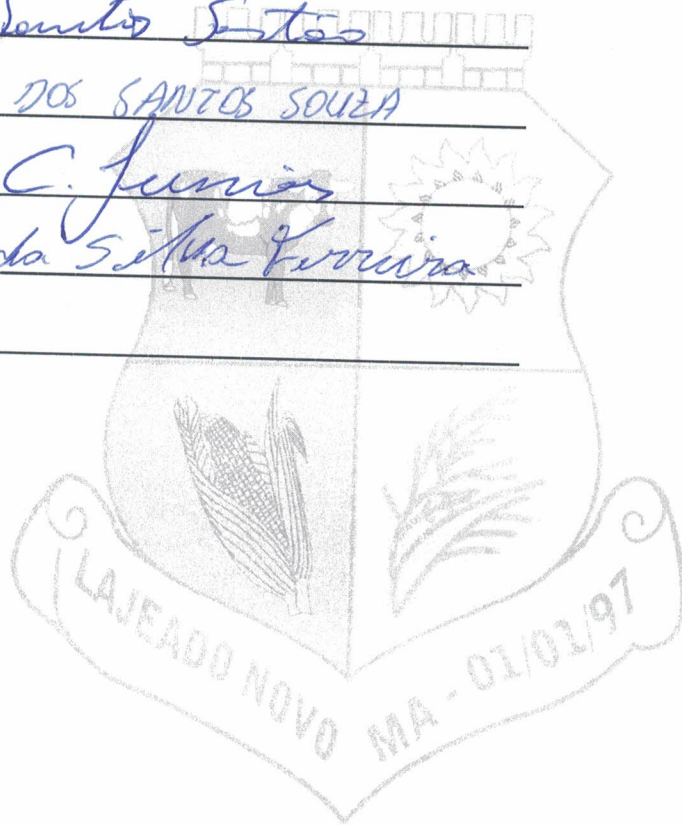 DOS SANTOS SOUZA
C. Junior
da Silva Ferreira
LAJEADO NOVO MA - 01/01/97